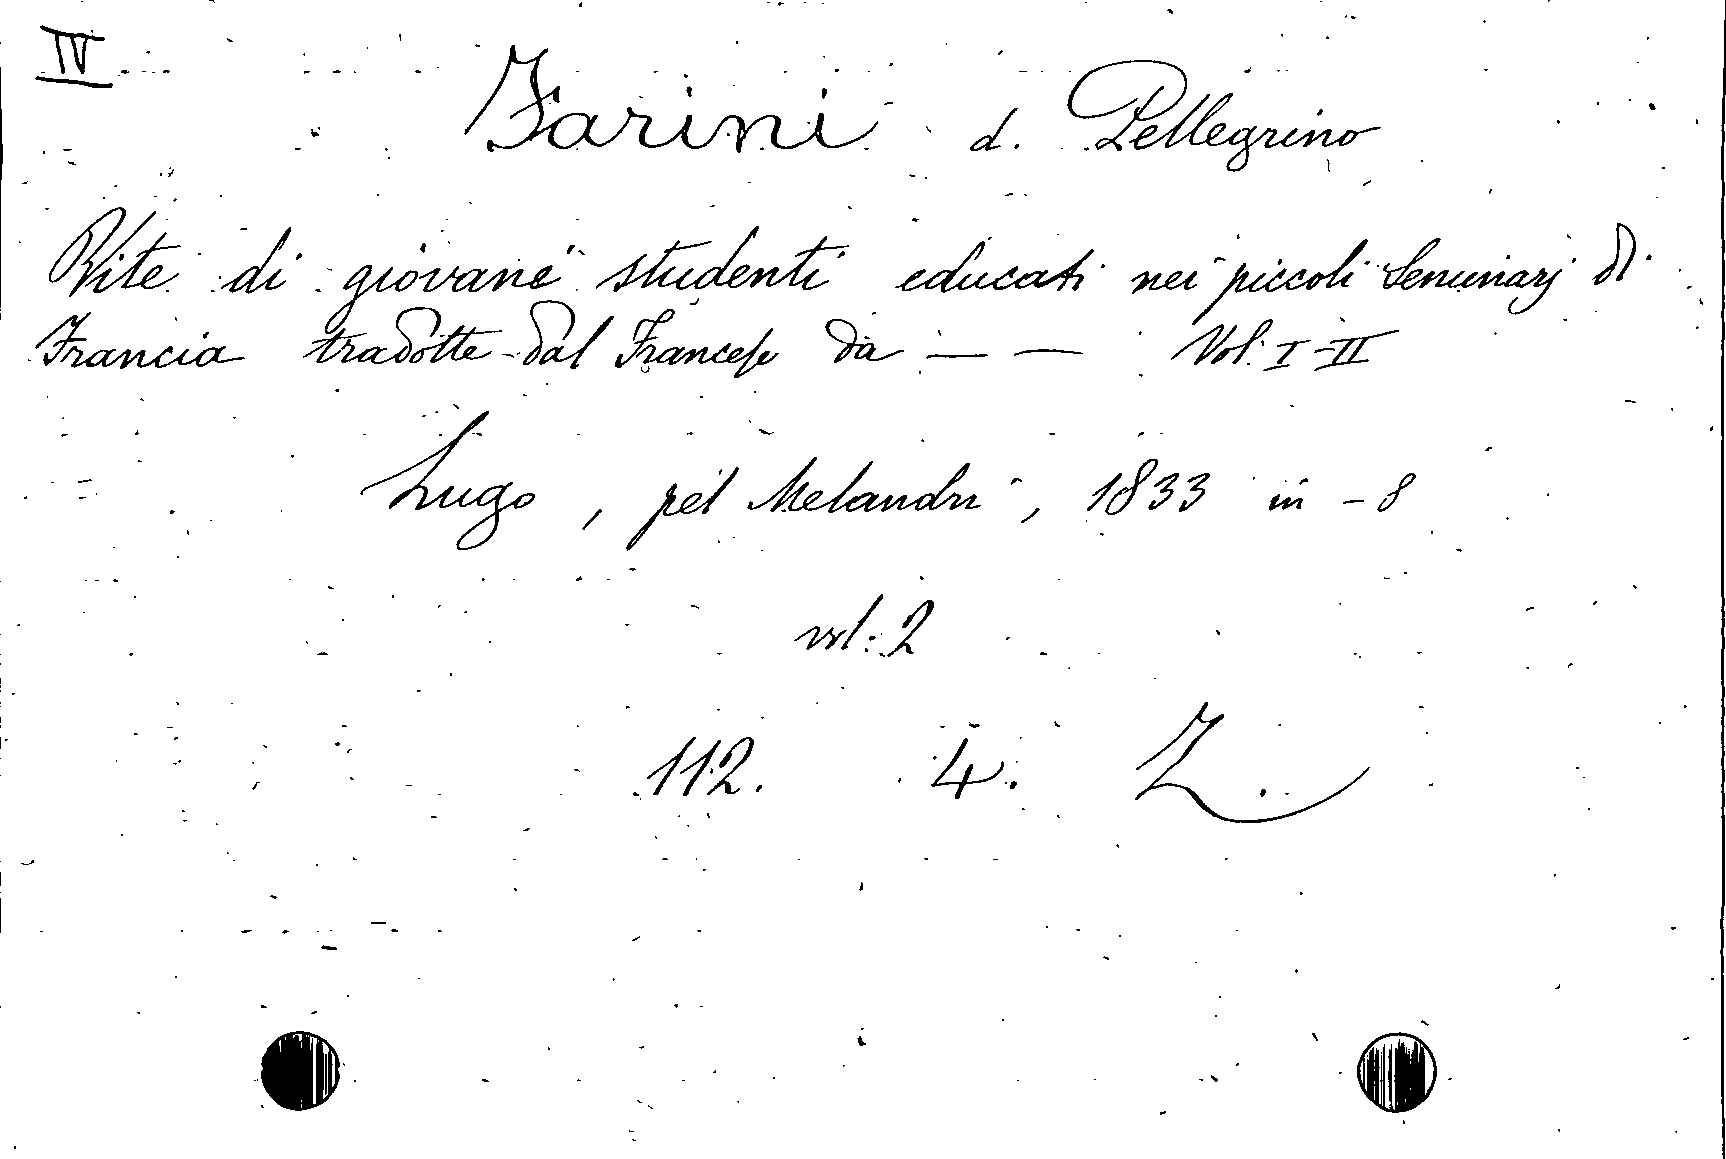 IV
Farini d. Pellegrino
Vite di giovani studenti educati nei piccoli Seminarj di
Francia tradotte dal Francese da — — Vol. I-II
Lugo, pel Melandri, 1833 in-8
vol: 2
112. 4. Z.